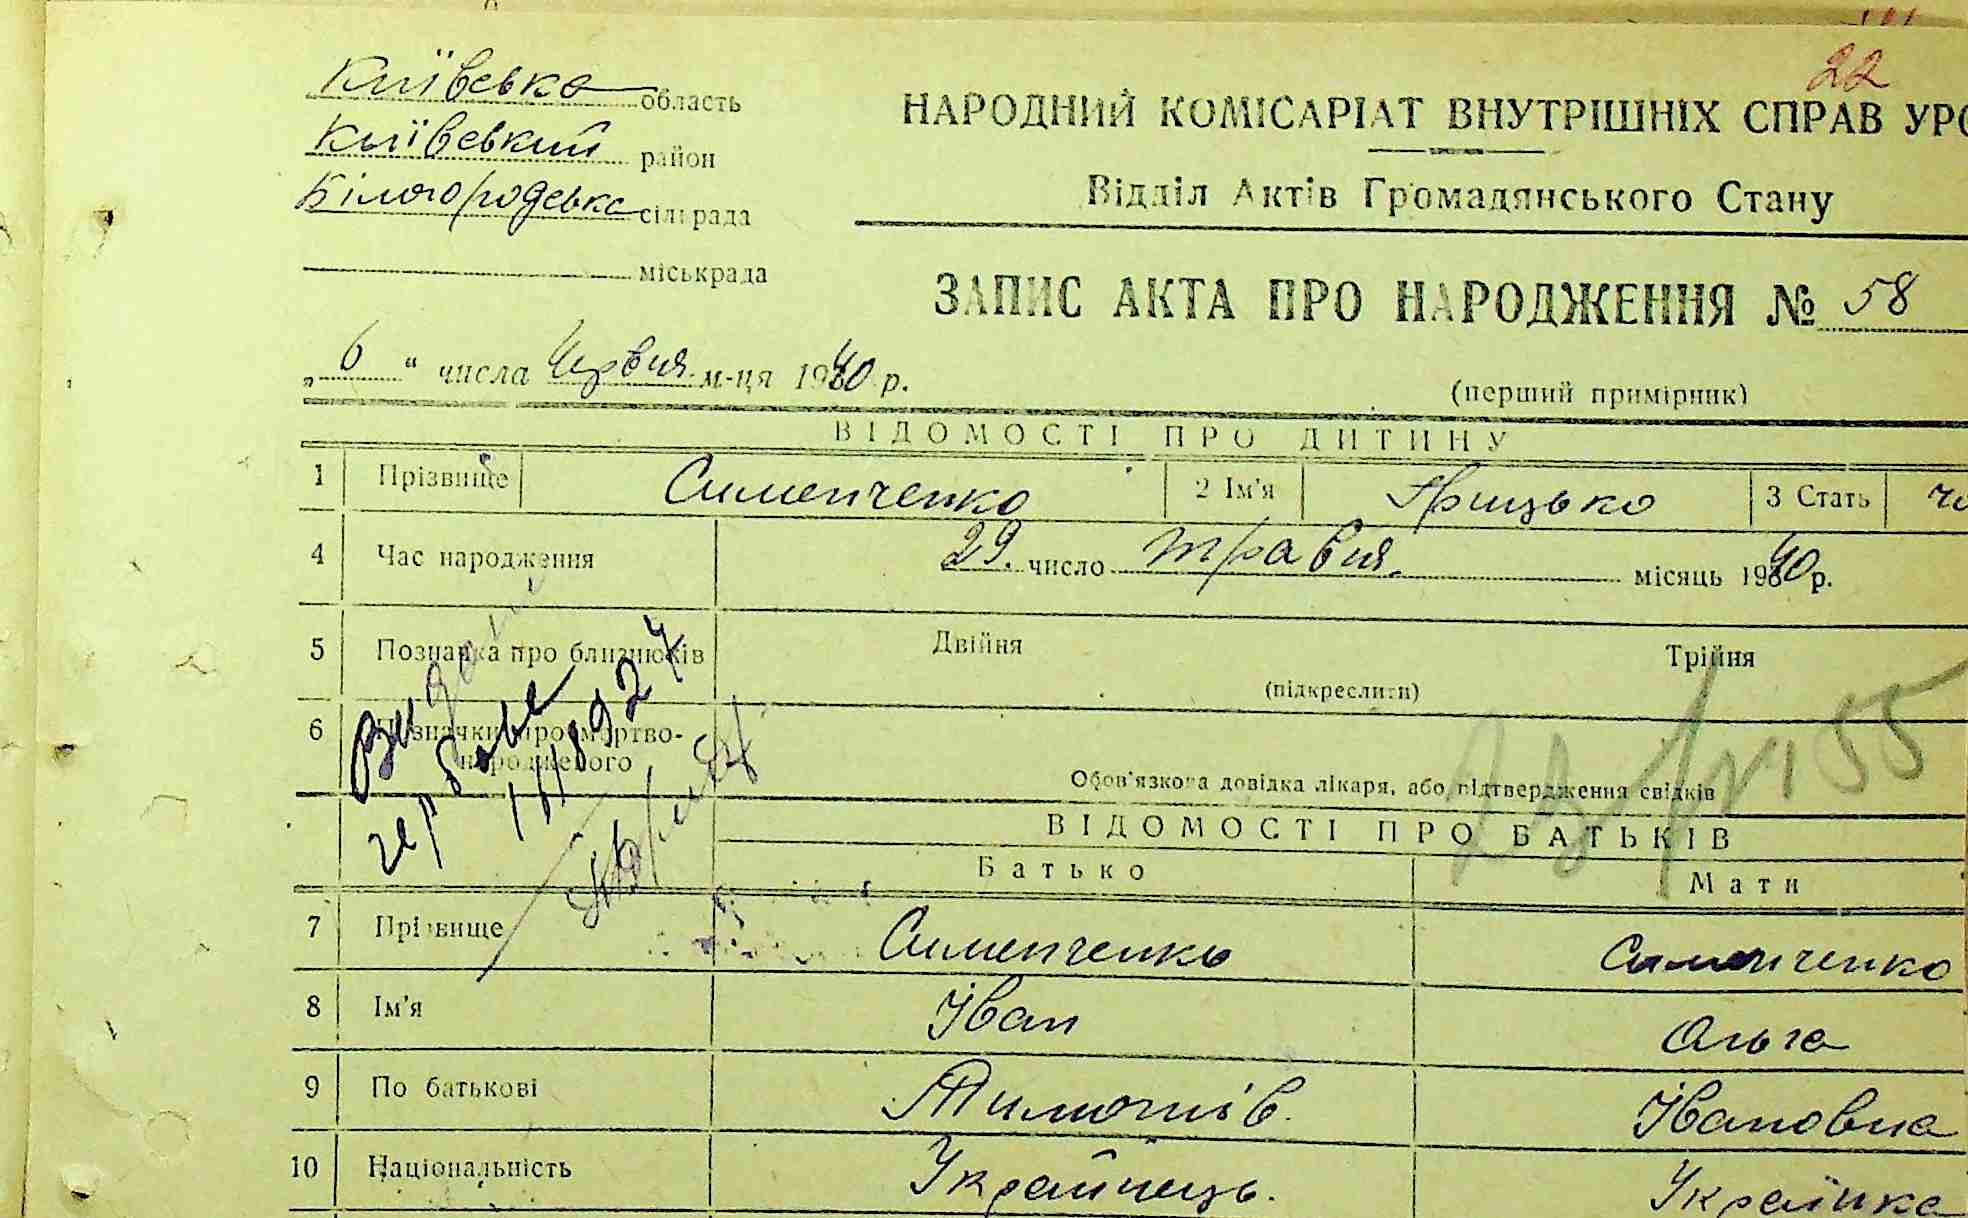 22
Київська область
Київський район
Білогородська сільрада
міськрада
НАРОДНИЙ КОМІСАРІАТ ВНУТРІШНІХ СПРАВ УРС
Відділ Актів Громадянського Стану
ЗАПИС АКТА ПРО НАРОДЖЕННЯ № 58
„ 6 “ числа Червня м-ця 1940 р.
(перший примірник)
ВІДОМОСТІ ПРО ДИТИНУ
1 Прізвище Сименченко 2 Ім'я Грицько 3 Стать чо
4 Час народження 29. число травня. місяць 1940 р.
5 Познака про близнюків Двійня Трійня
(підкреслити)
6 Позначки про мертво-
народженого
Обов'язкова довідка лікаря, або підтвердження свідків
Видано
III 8927
55
ВІДОМОСТІ ПРО БАТЬКІВ
Батько Мати
7 Прізвище Сименченко Сименченко
8 Ім'я Іван Ольга
9 По батькові Тимошів. Івановна
10 Національність Українець. Українка